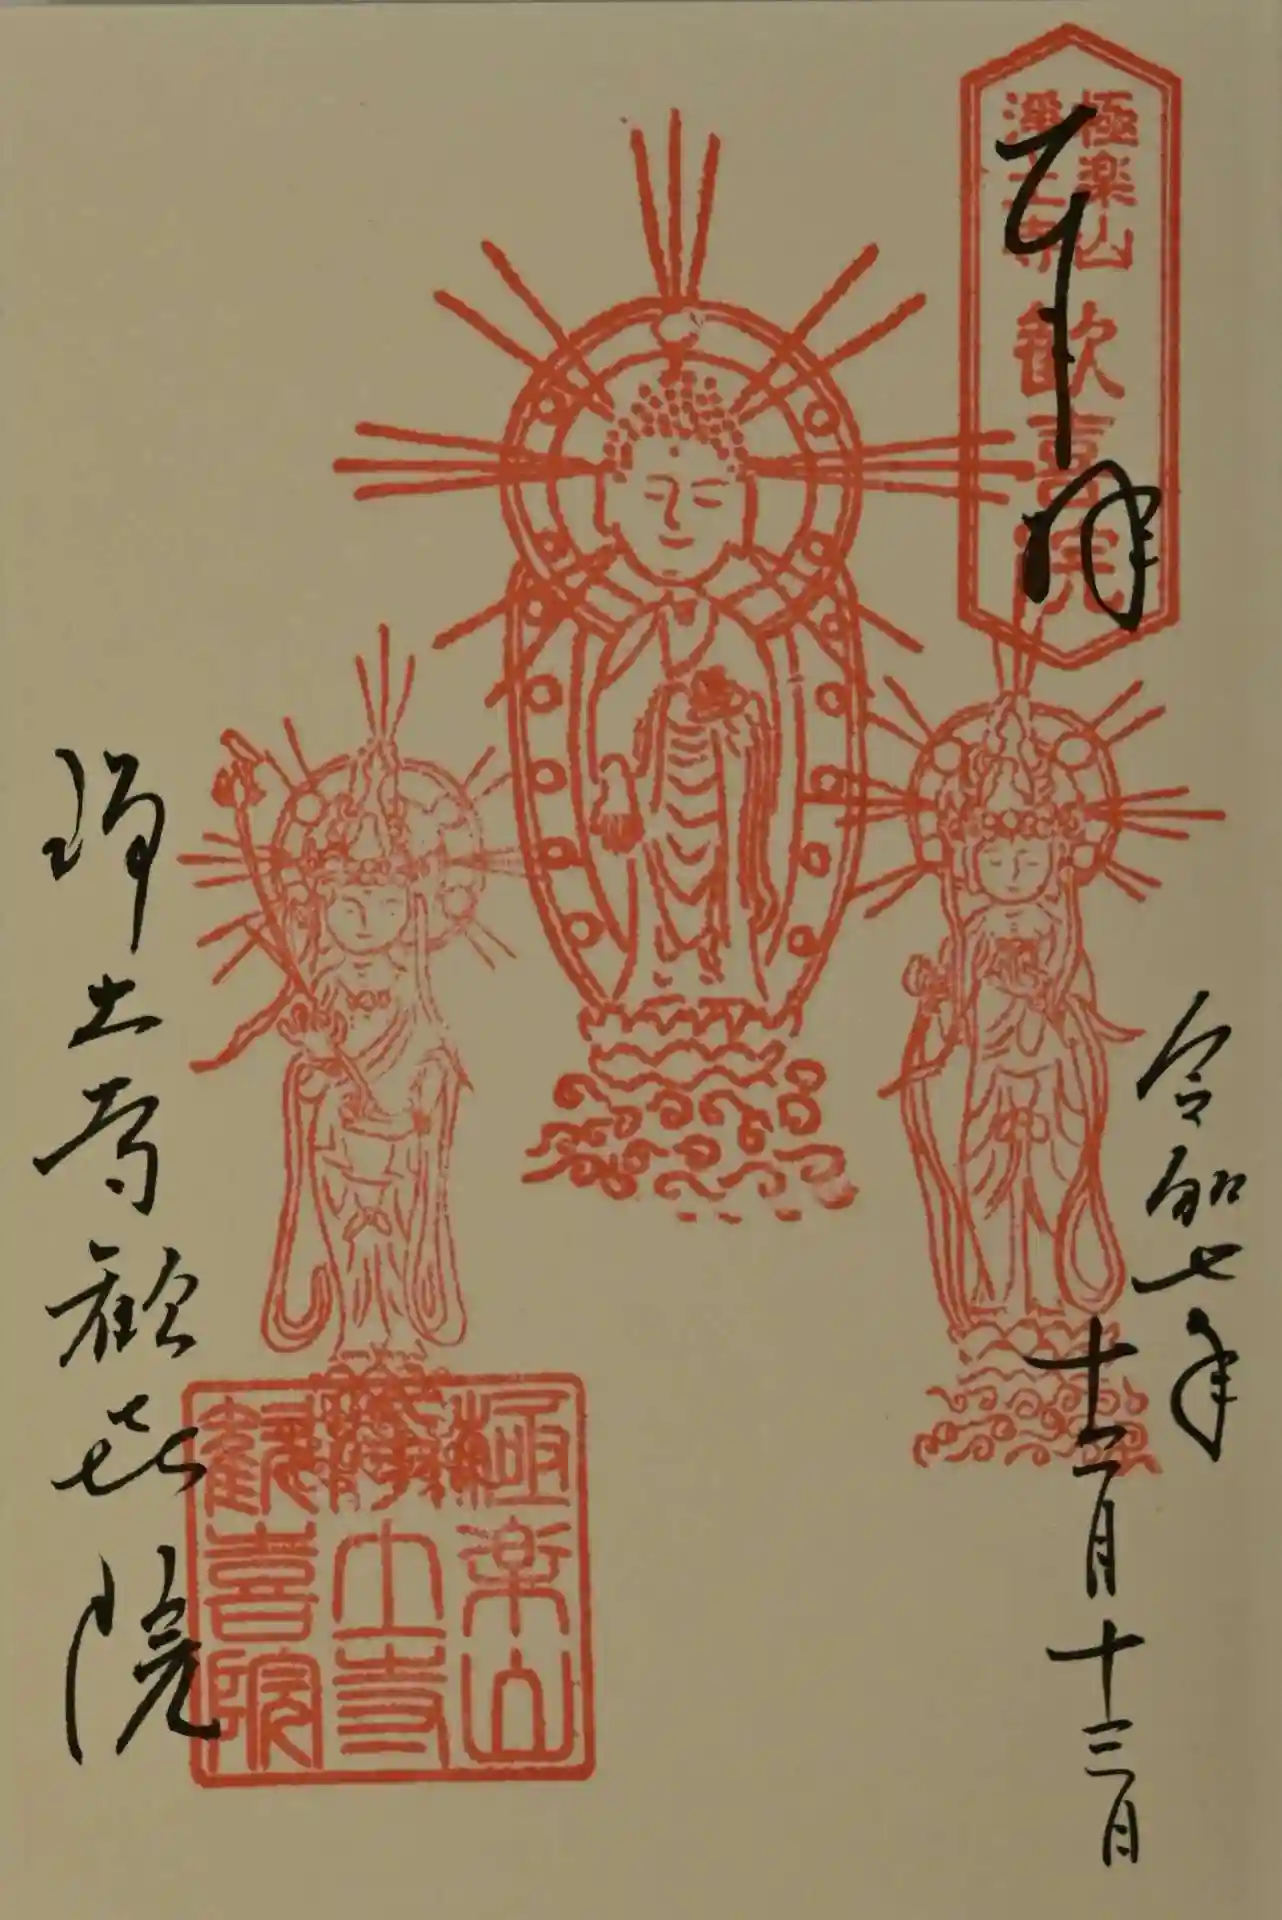 奉拝
極楽山
淨土寺
歓喜院
令和七年
十二月十三日
淨土寺歓喜院
極楽山
浄土寺
歓喜院